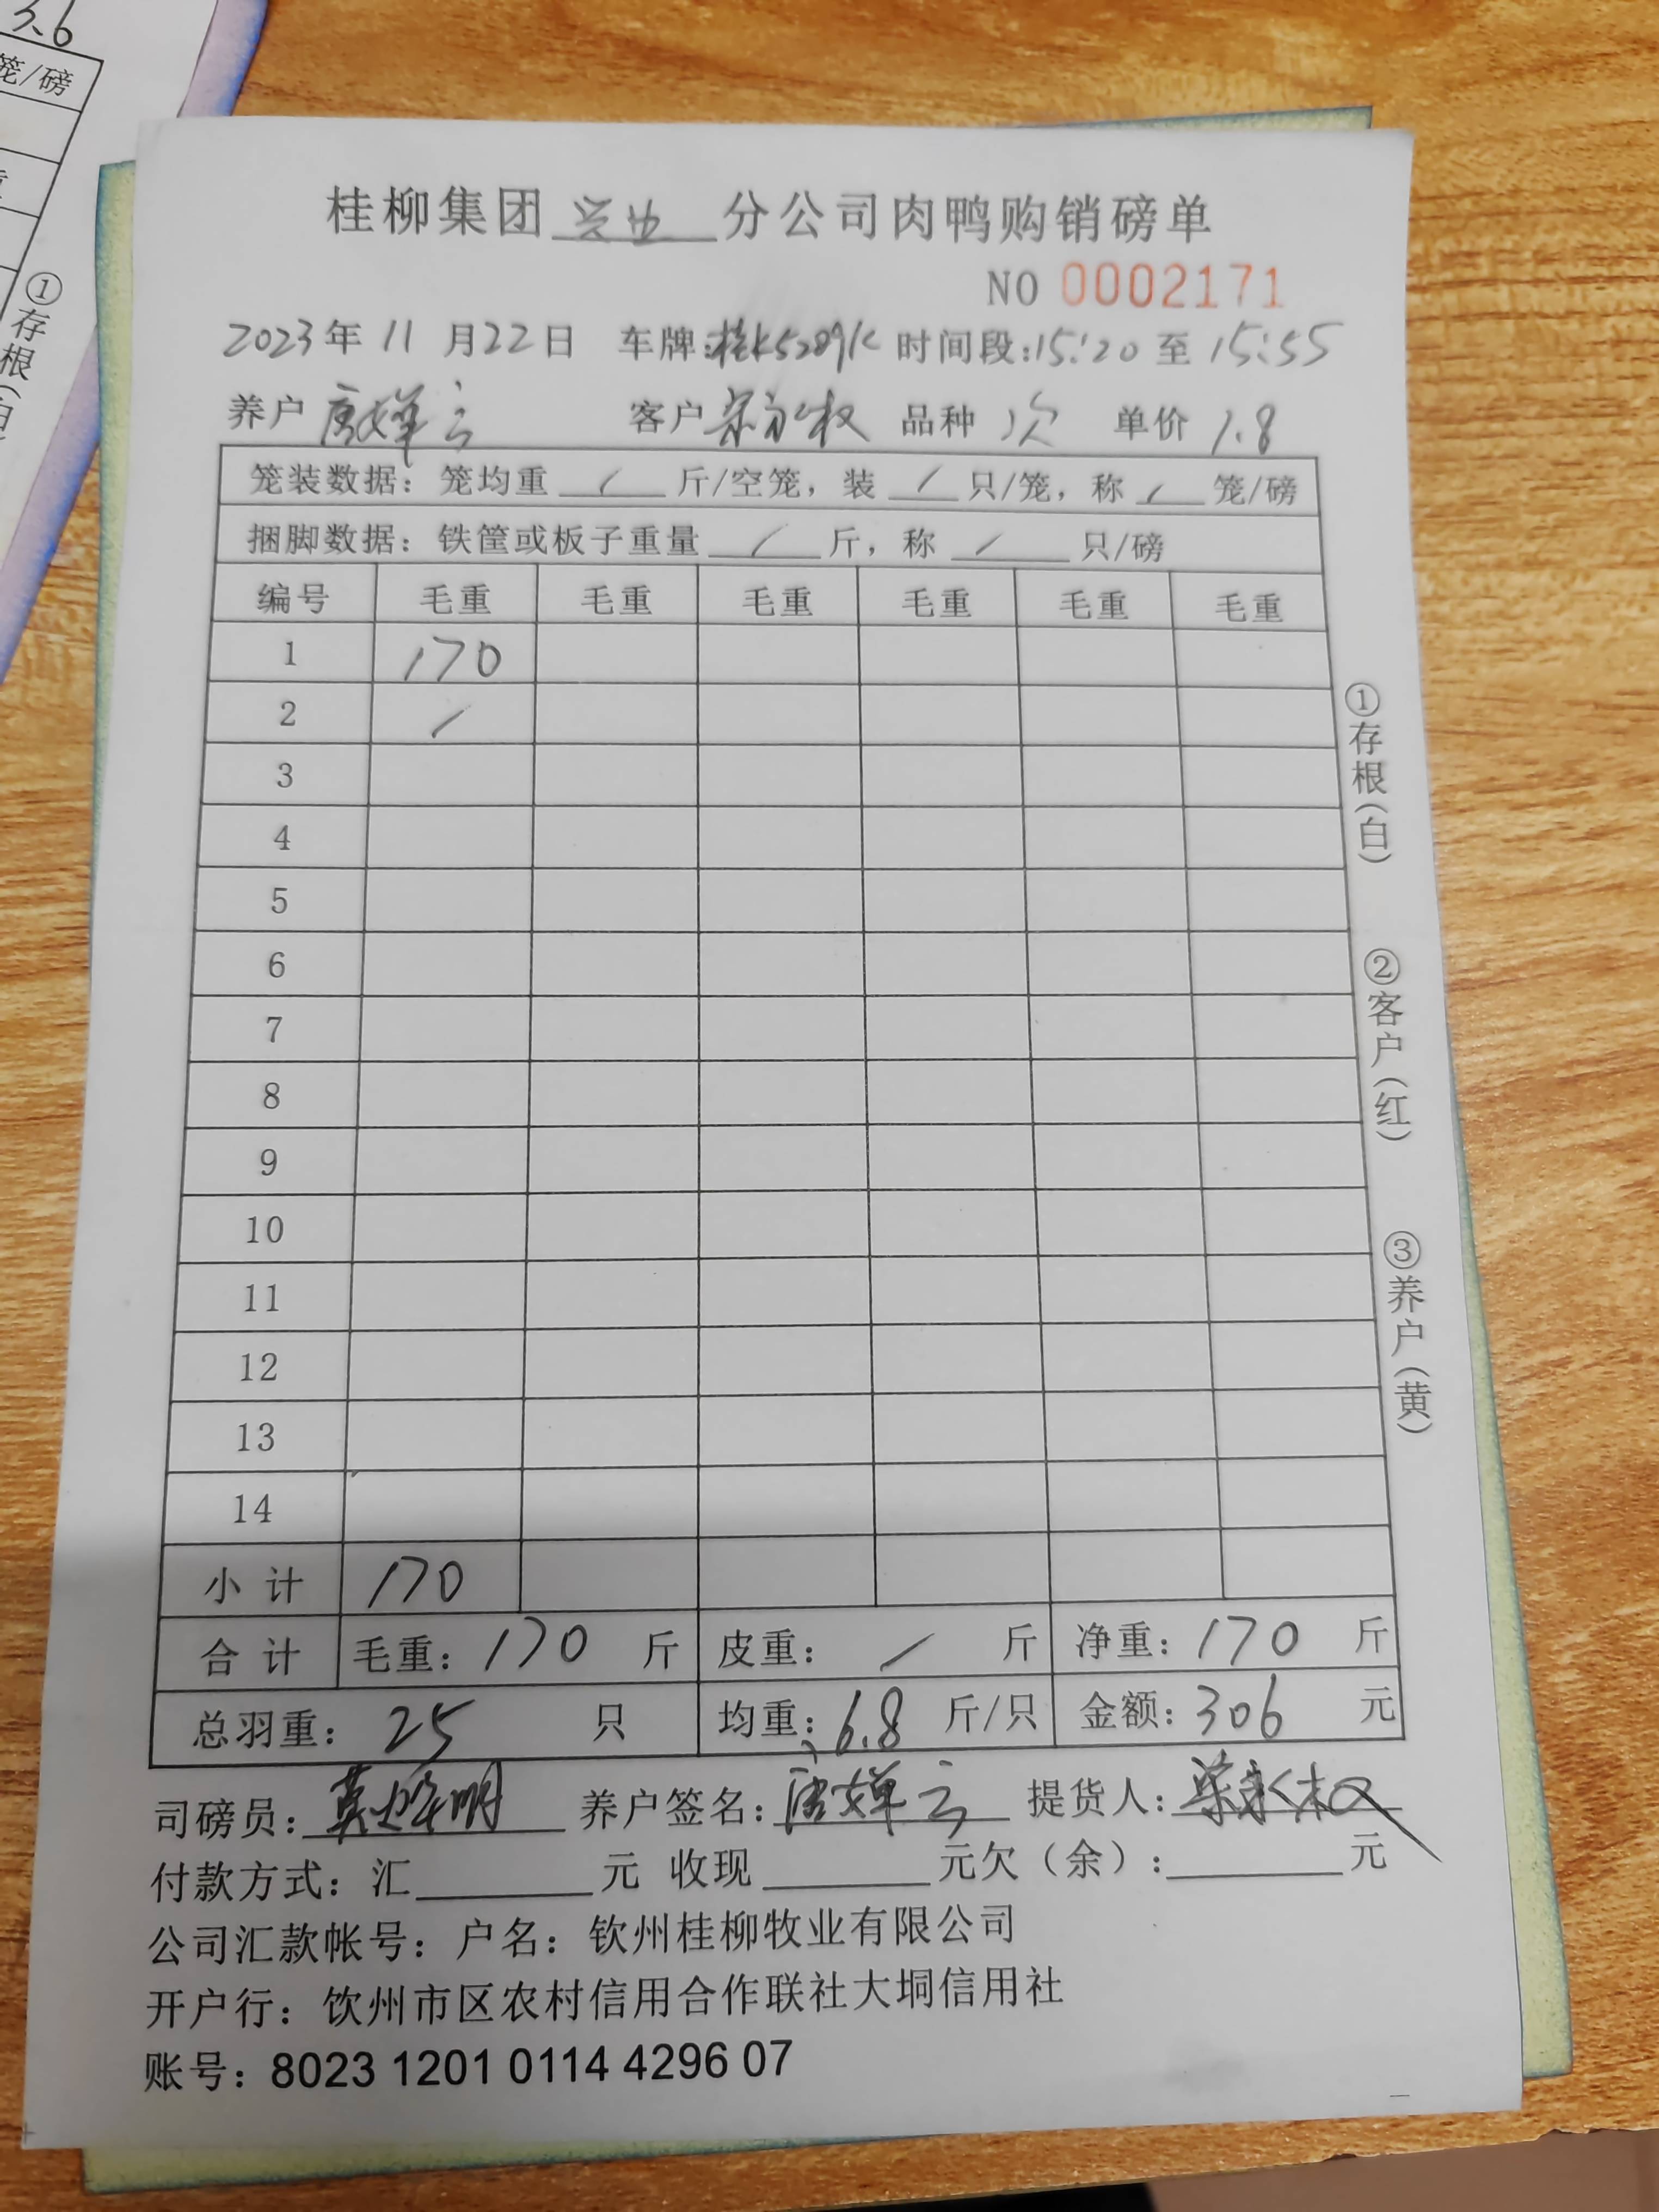 5.6
笼/磅
①存根(白
桂柳集团 兴业 分公司肉鸭购销磅单
NO 0002171
2023年 11 月22日 车牌:桂K5289K 时间段:15:20 至 15:55
养户 唐婵云 客户 宋永权 品种 次 单价 1.8
笼装数据: 笼均重 / 斤/空笼, 装 / 只/笼, 称 / 笼/磅
捆脚数据: 铁筐或板子重量 / 斤, 称 / 只/磅
编号 毛重 毛重 毛重 毛重 毛重 毛重
1 170
2 /
3
4
5
6
7
8
9
10
11
12
13
14
小 计 170
合 计 毛重: 170 斤 皮重: / 斤 净重: 170 斤
总羽重: 25 只 均重: 6.8 斤/只 金额: 306 元
司磅员: 养户签名: 唐婵云 提货人: 宋永权
付款方式: 汇 元 收现 元欠(余): 元
公司汇款帐号: 户名: 钦州桂柳牧业有限公司
开户行: 饮州市区农村信用合作联社大垌信用社
账号: 8023 1201 0114 4296 07
①存根(白)
②客户(红)
③养户(黄)